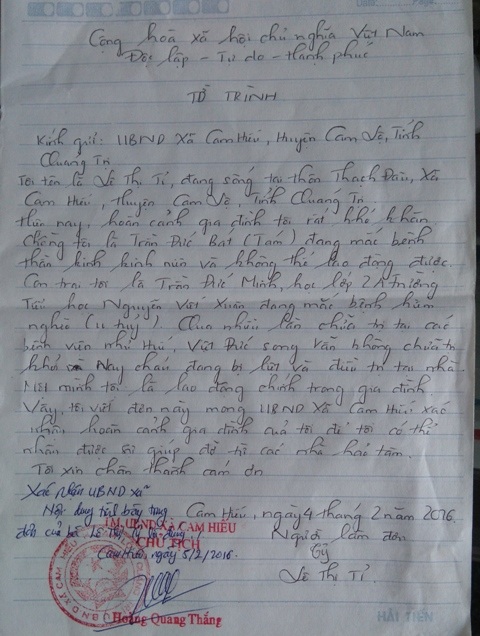 Cộng hoà xã hội chủ nghĩa Việt Nam
Độc lập - Tự do - Hạnh phúc
TỜ TRÌNH
Kính gửi: UBND Xã Cam Hiếu, Huyện Cam Lộ, Tỉnh
Quảng Trị
Tôi tên là Lê Thị Tỉ, đang sống tại thôn Thạch Đâu, Xã
Cam Hiếu, Huyện Cam Lộ, Tỉnh Quảng Trị
Hiện nay, hoàn cảnh gia đình tôi rất khó khăn
Chồng tôi là Trần Đức Bat (Tám) đang mắc bệnh
thần kinh kinh niên và không thể lao động được.
Con trai tôi là Trần Đức Minh, học lớp 2A Trường
Tiểu học Nguyễn Viết Xuân đang mắc bệnh hiểm
nghèo (U tuỷ). Qua nhiều lần chữa trị tại các
bệnh viện như Huế, Việt Đức song vẫn không chữa trị
khỏi Nay cháu đang bị liệt và điều trị tại nhà.
Một mình tôi là lao động chính trong gia đình
Vậy, tôi viết đơn này mong UBND Xã Cam Hiếu xác
nhận hoàn cảnh gia đình của tôi để tôi có thể
nhận được sự giúp đỡ từ các nhà hảo tâm.
Tôi xin chân thành cám ơn
Xác nhận UBND xã
Nội dung trình bày trong
đơn của bà Lê Thị Tỷ là đúng.
Cam Hiếu, ngày 5/2/2016.
Cam Hiếu, ngày 4 tháng 2 năm 2016
Người làm đơn
Tỷ
Lê Thị Tỉ.
TM. UBND XÃ CAM HIẾU
CHỦ TỊCH
Hoàng Quang Thắng
HẢI TIẾN